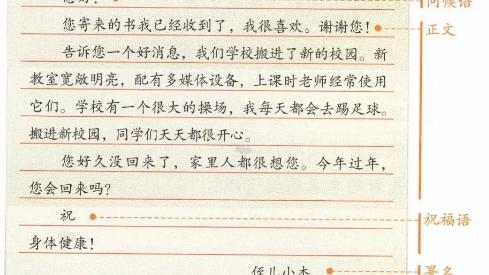 您寄来的书我已经收到了，我很喜欢。谢谢您！
正文
告诉您一个好消息，我们学校搬进了新的校园。新
教室宽敞明亮，配有多媒体设备，上课时老师经常使用
它们。学校有一个很大的操场，我每天都会去踢足球。
搬进新校园，同学们天天都很开心。
您好久没回来了，家里人都很想您。今年过年，
您会回来吗？
祝
祝福语
身体健康！
侄儿小杰
署名